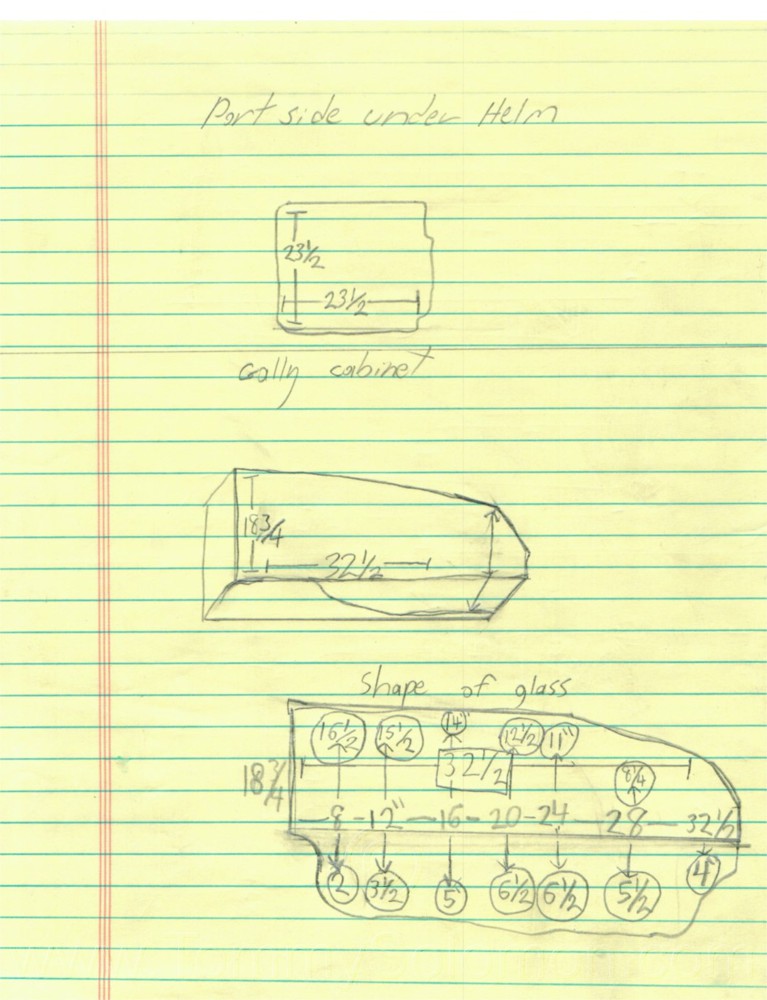 Port side under Helm
23 1/2
23 1/2
Gally cabinet
18 3/4
32 1/2
Shape of glass
16 1/2 15 1/2 14" 12 1/2 11"
32 1/2
8 1/4
18 3/4
8 - 12" - 16 - 20 - 24 - 28 - 32 1/2
2 3 1/2 5 6 1/2 6 1/2 5 1/2 4